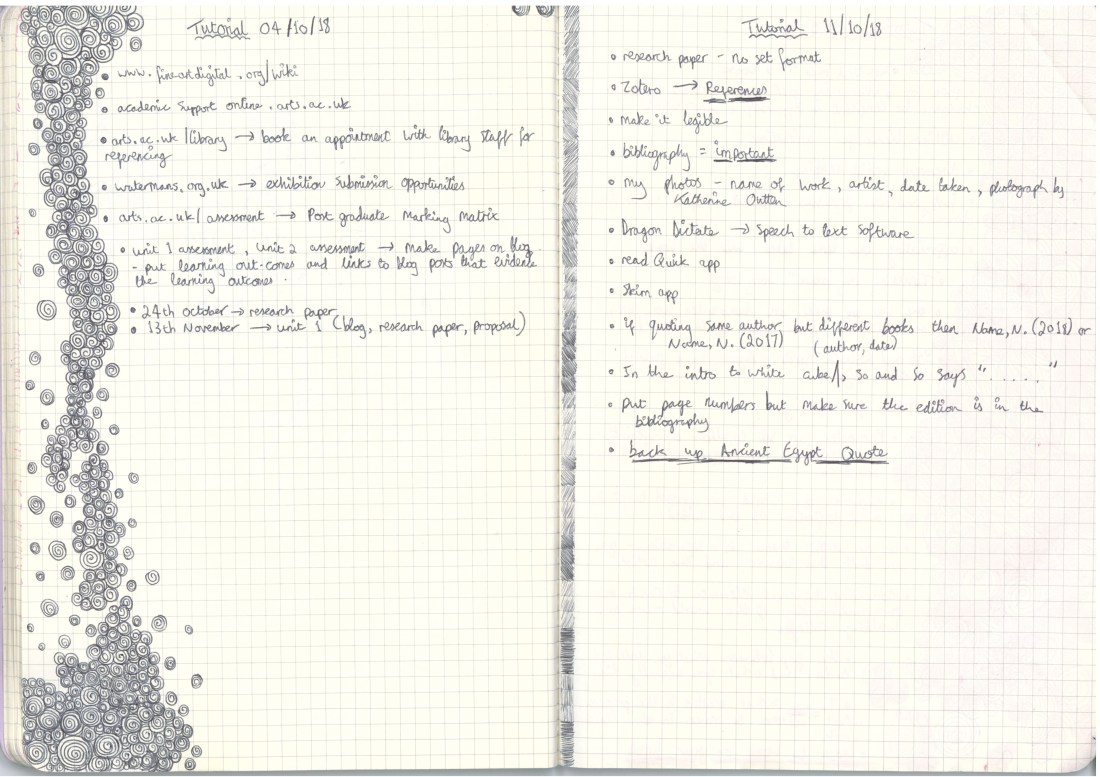 Tutorial 04/10/18
• www.fineartdigital.org/wiki
• academic support online.arts.ac.uk
• arts.ac.uk/library → book an appointment with library staff for
referencing
• watermans.org.uk → exhibition submission opportunities
• arts.ac.uk/assessment → Post graduate Marking Matrix
• unit 1 assessment, unit 2 assessment → make pages on blog
- put learning out-comes and links to blog posts that evidence
the learning outcomes.
• 24th October → research paper
• 13th November → unit 1 (blog, research paper, proposal)
Tutorial 11/10/18
• research paper - no set format
• Zotero → References
• make it legible
• bibliography = important
• my photos - name of work, artist, date taken, photograph by
Katherine Outten
• Dragon Dictate → speech to text software
• read Quick app
• Skim app
• if quoting same author but different books then Name, N. (2018) or
Name, N. (2017) (author, date)
• In the intro to white cube/, so and so says "....."
• put page numbers but make sure the edition is in the
bibliography
• back up Ancient Egypt Quote